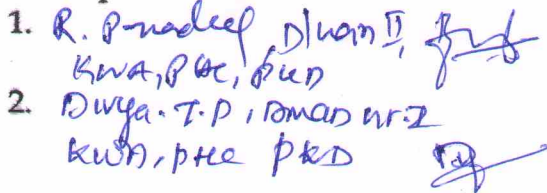 1. R. Pradeep, D/man II,
KWA, PHC, PKD
2. Divya. T. P, DMAN Gr. I
KWA, PHC PKD